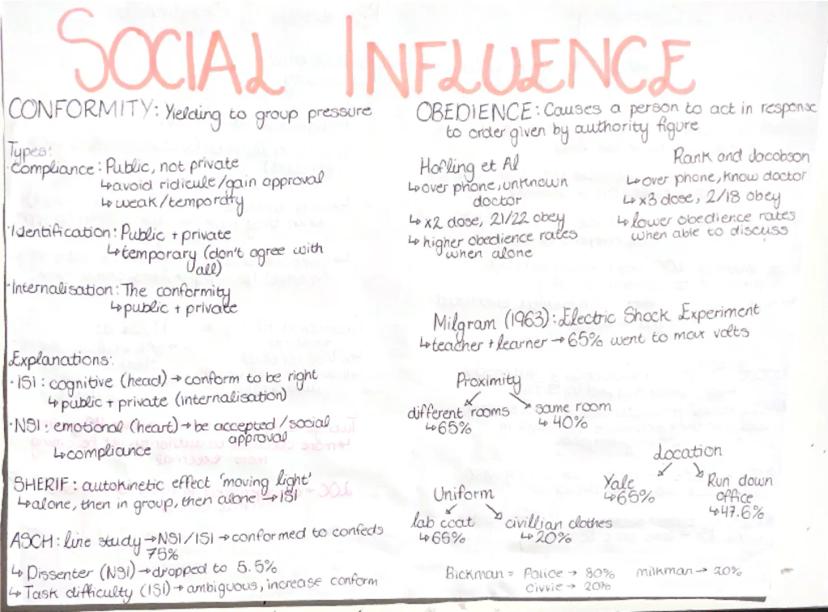 SOCIAL INFLUENCE
CONFORMITY: Yielding to group pressure
Types:
·Compliance: Public, not private
↳avoid ridicule/gain approval
↳weak/temporary
·Identification: Public + private
↳temporary (don't agree with
all)
·Internalisation: The conformity
↳public + private
Explanations:
·ISI: cognitive (head) → conform to be right
↳public + private (internalisation)
·NSI: emotional (heart) → be accepted/social
approval
↳compliance
SHERIF: autokinetic effect 'moving light'
↳alone, then in group, then alone → ISI
ASCH: line study → NSI/ISI → conformed to confeds
75%
↳ Dissenter (NSI) → dropped to 5.5%
↳ Task difficulty (ISI) → ambiguous, increase conform
OBEDIENCE: Causes a person to act in response
to order given by authority figure
Hofling et Al
↳over phone, unknown
doctor
↳x2 dose, 21/22 obey
↳higher obedience rates
when alone
Rank and Jacobson
↳over phone, know doctor
↳x3 dose, 2/18 obey
↳lower obedience rates
when able to discuss
Milgram (1963): Electric Shock Experiment
↳teacher + learner → 65% went to max volts
Proximity
different rooms
↳65%
same room
↳40%
Location
Yale
↳65%
Run down
office
↳47.6%
Uniform
lab coat
↳65%
civillian clothes
↳20%
Bickman = Police → 80% milkman → 20%
Civvie → 20%